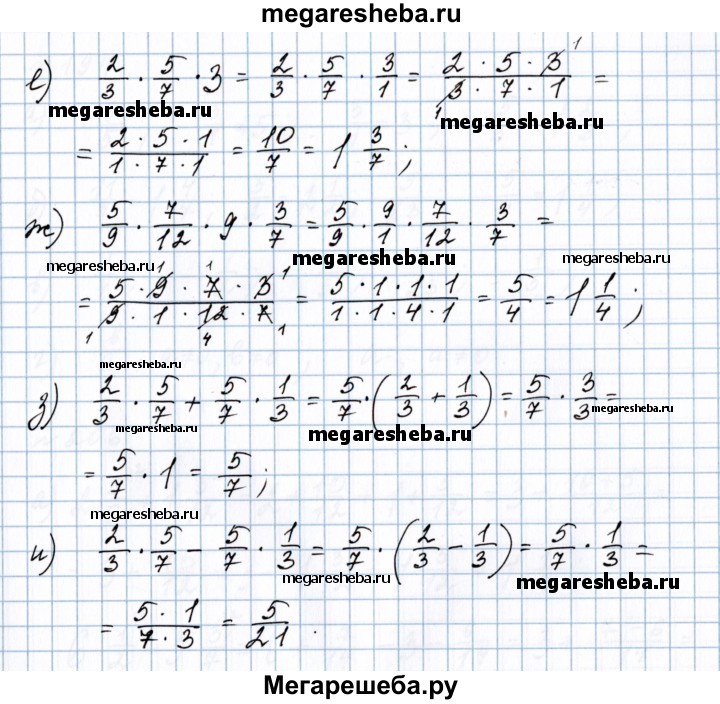 megaresheba.ru
е) 2/3 · 5/7 · 3 = 2/3 · 5/7 · 3/1 = (2 · 5 · 3 1)/(1 3 · 7 · 1) =
megaresheba.ru megaresheba.ru
= (2 · 5 · 1)/(1 · 7 · 1) = 10/7 = 1 3/7 ;
ж) 5/9 · 7/12 · 9 · 3/7 = 5/9 · 9/1 · 7/12 · 3/7 =
megaresheba.ru megaresheba.ru megaresheba.ru
= (5 · 9 1 · 7 1 · 3 1)/(1 9 · 1 · 12 4 · 7 1) = (5 · 1 · 1 · 1)/(1 · 1 · 4 · 1) = 5/4 = 1 1/4 ;
megaresheba.ru
з) 2/3 · 5/7 + 5/7 · 1/3 = 5/7 · (2/3 + 1/3) = 5/7 · 3/3 =
megaresheba.ru megaresheba.ru megaresheba.ru
= 5/7 · 1 = 5/7 ;
megaresheba.ru
и) 2/3 · 5/7 − 5/7 · 1/3 = 5/7 · (2/3 − 1/3) = 5/7 · 1/3 =
megaresheba.ru megaresheba.ru
= (5 · 1)/(7 · 3) = 5/21 .
Мегарешеба.ру